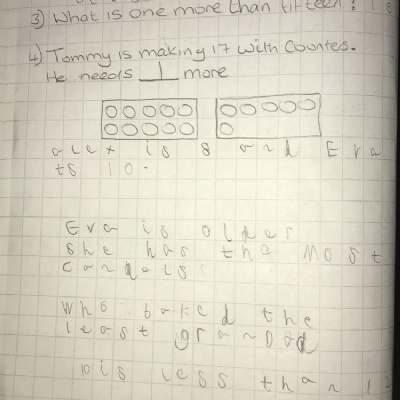 3) What is one more than fifteen?
4) Tommy is making 17 with Countes.
He needs 1 more
alex is 8 and Eva
is 10.
Eva is older
she has the most
Who baked the
least granDad
10 is less than 12